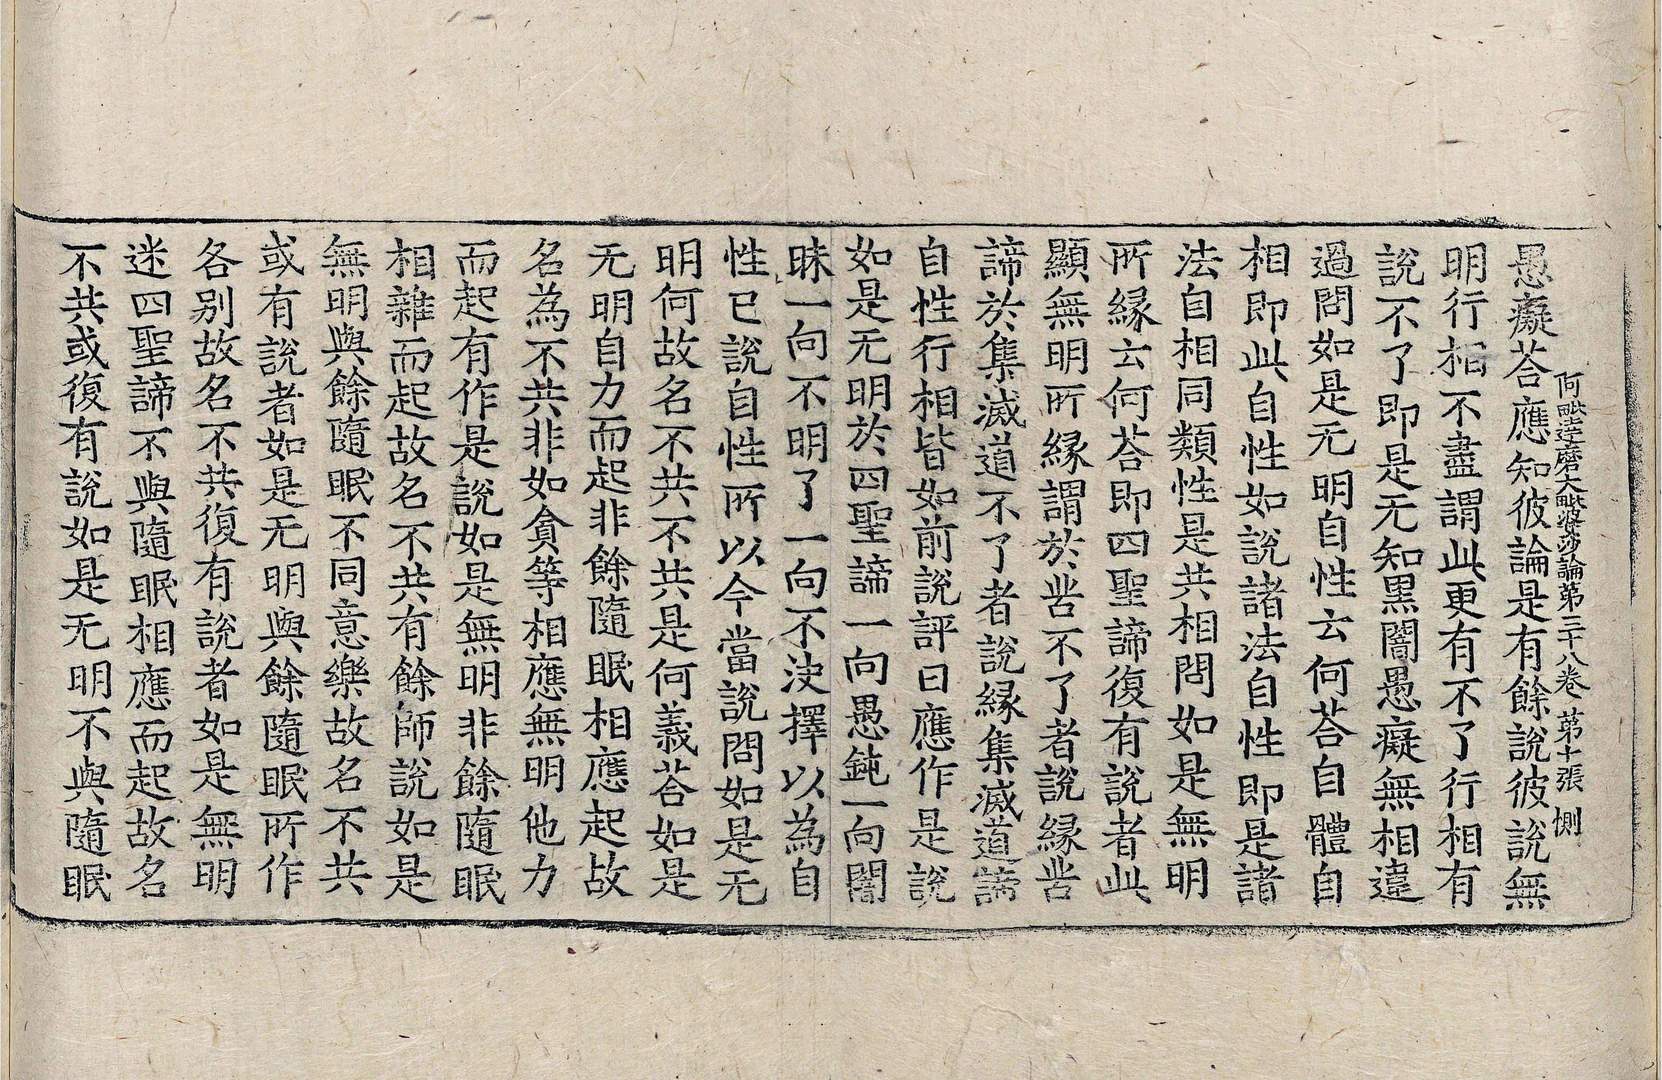 阿毗達磨大毗婆沙論第三十八卷 第十張 惻
愚癡荅應知彼論是有餘說彼說無
明行相不盡謂此更有不了行相有
說不了即是无知黒闇愚癡無相違
過問如是无明自性云何荅自體自
相即此自性如說諸法自性即是諸
法自相同類性是共相問如是無明
所縁云何荅即四聖諦復有說者此
顯無明所縁謂於苦不了者說縁苦
諦於集滅道不了者說縁集滅道諦
自性行相皆如前說評曰應作是說
如是无明於四聖諦一向愚鈍一向闇
昧一向不明了一向不決擇以為自
性已說自性所以今當說問如是无
明何故名不共不共是何義荅如是
无明自力而起非餘隨眠相應起故
名為不共非如貪等相應無明他力
而起有作是說如是無明非餘隨眠
相雜而起故名不共有餘師說如是
無明與餘隨眠不同意樂故名不共
或有說者如是无明與餘隨眠所作
各別故名不共復有說者如是無明
迷四聖諦不與隨眠相應而起故名
不共或復有說如是无明不與隨眠